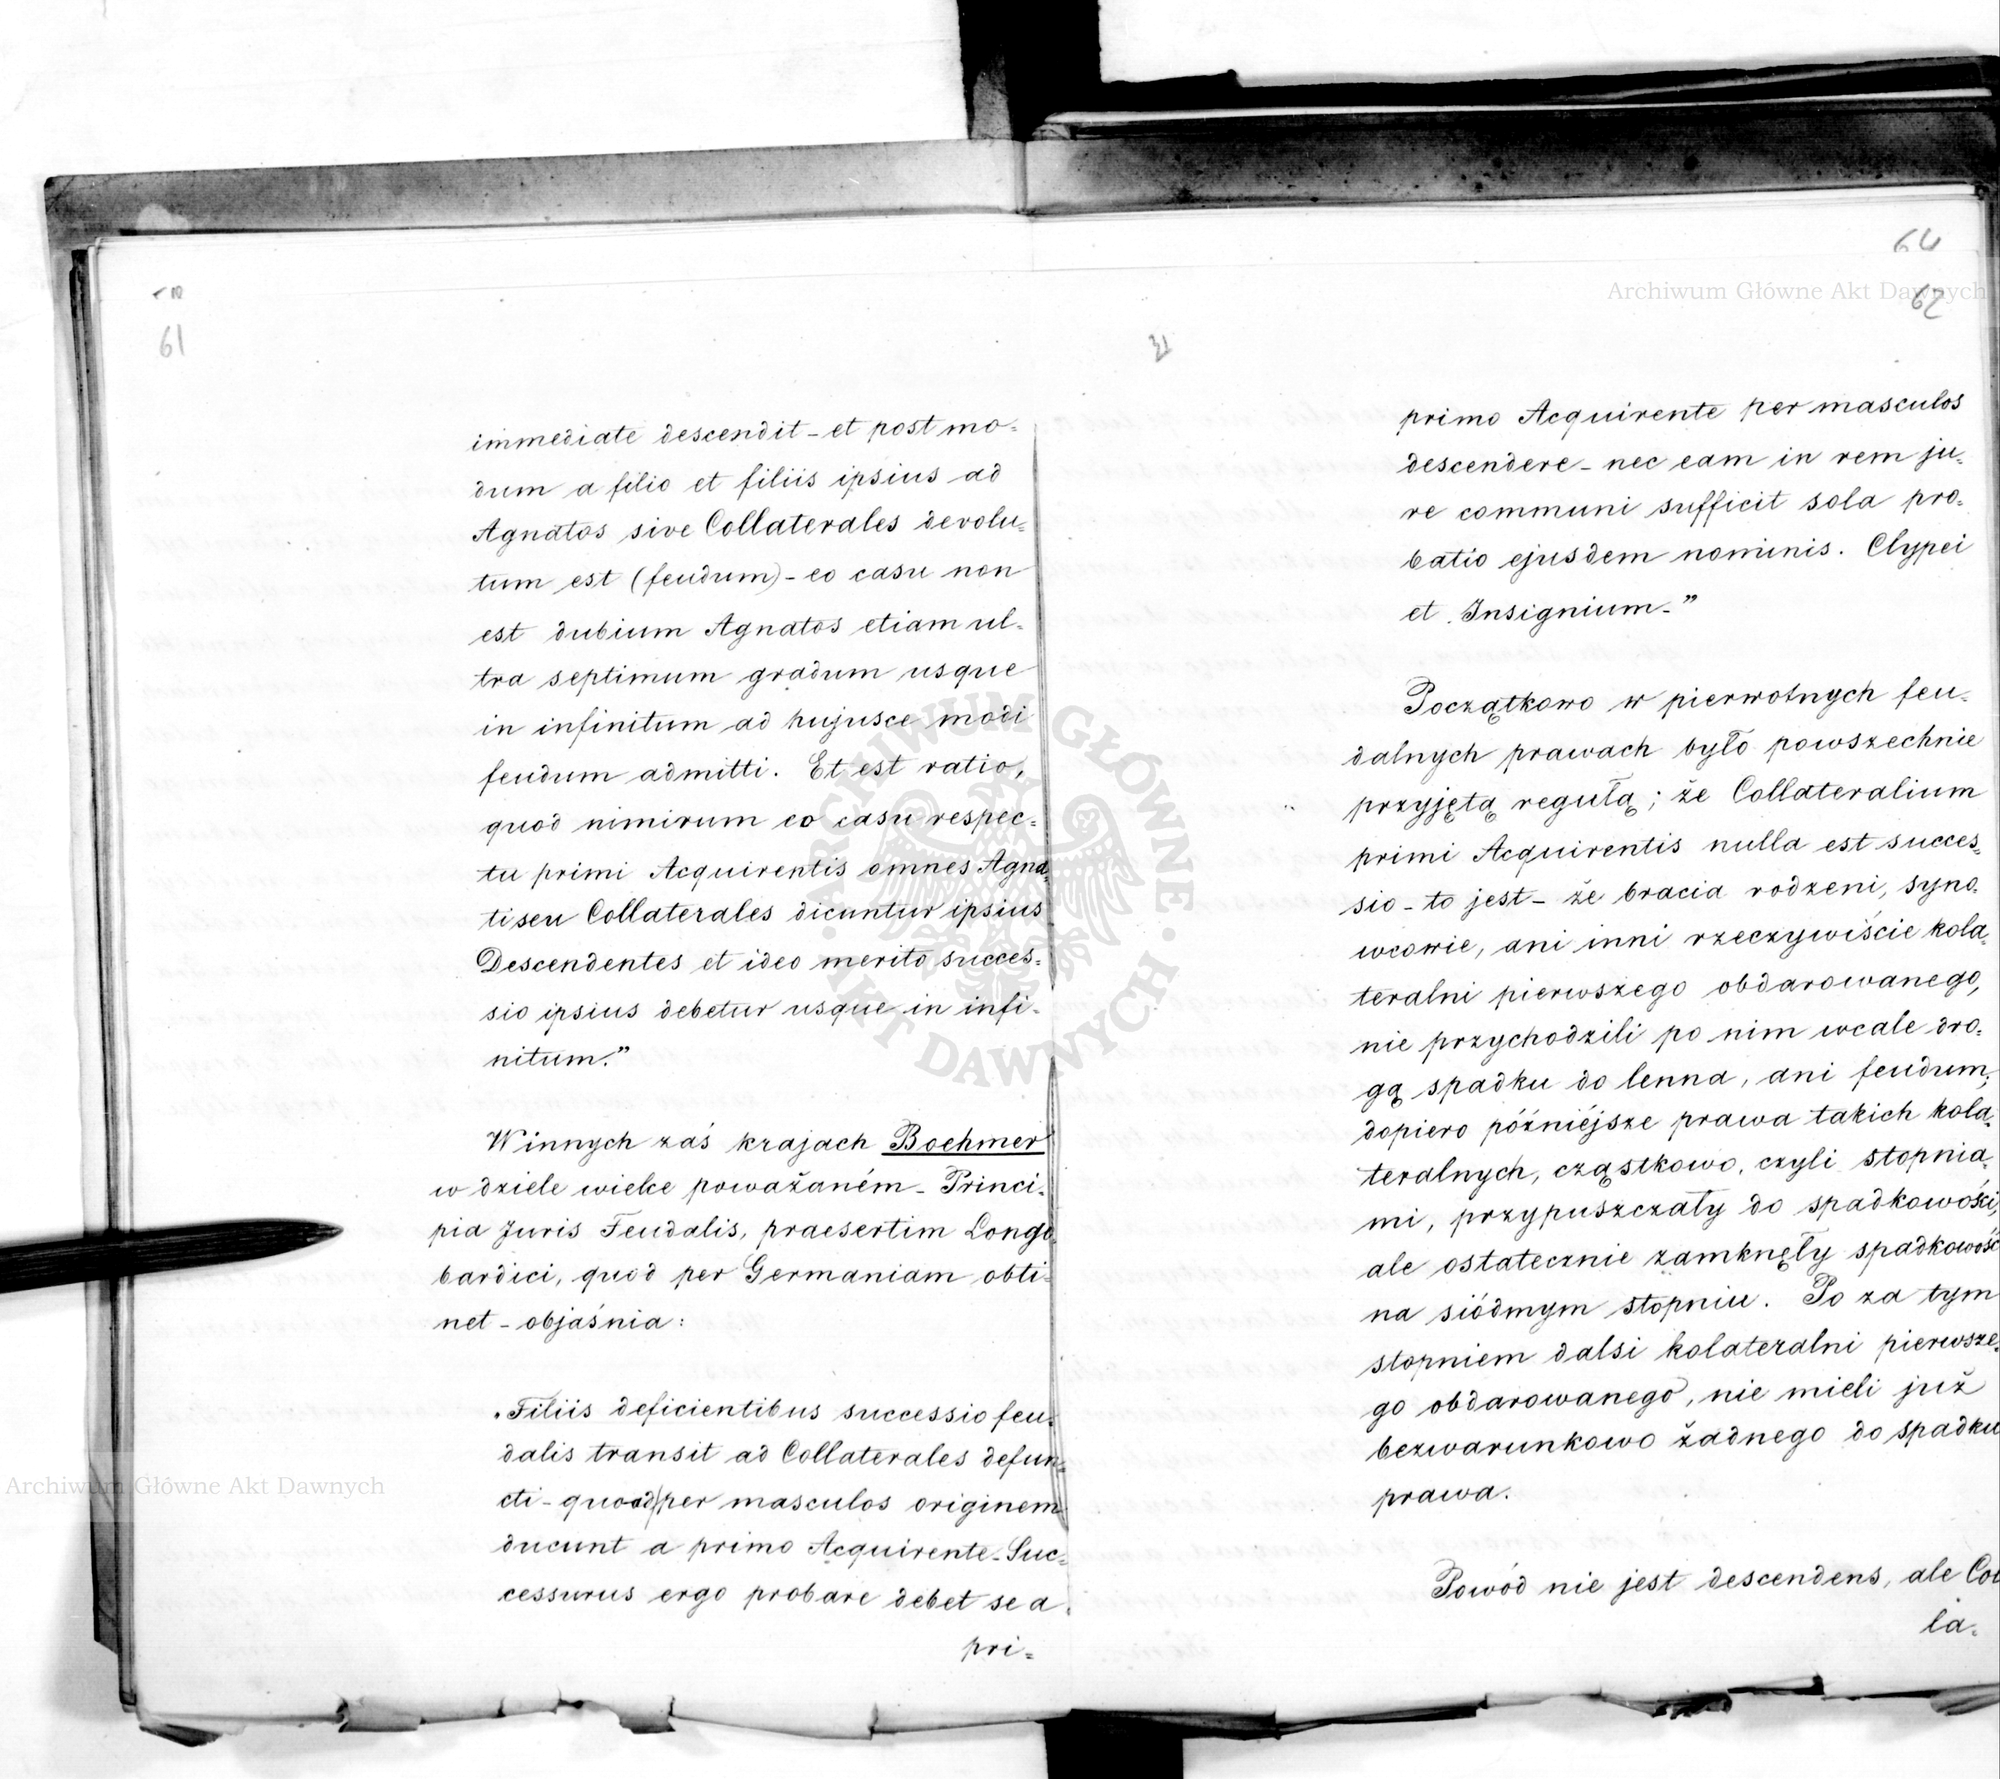 61
immediate descendit - et post mo=
dum a filio et filiis ipsius ad
Agnatos sive Collaterales devolu=
tum est (feudum) - eo casu non
est dubium Agnatos etiam ul=
tra septimum gradum usque
in infinitum ad hujusce modi
feudum admitti. Et est ratio,
quod nimirum eo casu respec=
tu primi Acquirentis omnes Agna=
ti seu Collaterales dicuntur ipsius
Descendentes et ideo merito succes=
sio ipsius debetur usque in infi=
nitum."
W innych zaś krajach Boehmer
w dziele wielce poważaném - Princi=
pia Juris Feudalis, praesertim Longo=
bardici, quod per Germaniam obti=
net - objaśnia:
"Filiis deficientibus successio feu=
dalis transit ad Collaterales defun=
cti - quoad per masculos originem
ducunt a primo Acquirente - Suc=
cessurus ergo probare debet se a
pri=
64
62
31
primo Acquirente per masculos
descendere - nec eam in rem ju=
re communi sufficit sola pro=
batio ejusdem nominis. Clypei
et Insignium -"
Początkowo w pierwotnych feu=
dalnych prawach było powszechnie
przyjętą regułą; że Collateralium
primi Acquirentis nulla est succes=
sio - to jest - że bracia rodzeni, syno=
wcowie, ani inni rzeczywiście kola=
teralni pierwszego obdarowanego,
nie przychodzili po nim wcale dro=
gą spadku do lenna, ani feudum;
dopiero późniejsze prawa takich kola=
teralnych, cząstkowo, czyli stopnia=
mi, przypuszczały do spadkowości,
ale ostatecznie zamknęły spadkowość
na siódmym stopniu. Po za tym
stopniem dalsi kolateralni pierwsze=
go obdarowanego, nie mieli już
bezwarunkowo żadnego do spadku
prawa.
Powód nie jest descendens, ale Col
la=
Archiwum Główne Akt Dawnych
Archiwum Główne Akt Dawnych
ARCHIWUM GŁÓWNE · AKT DAWNYCH ·